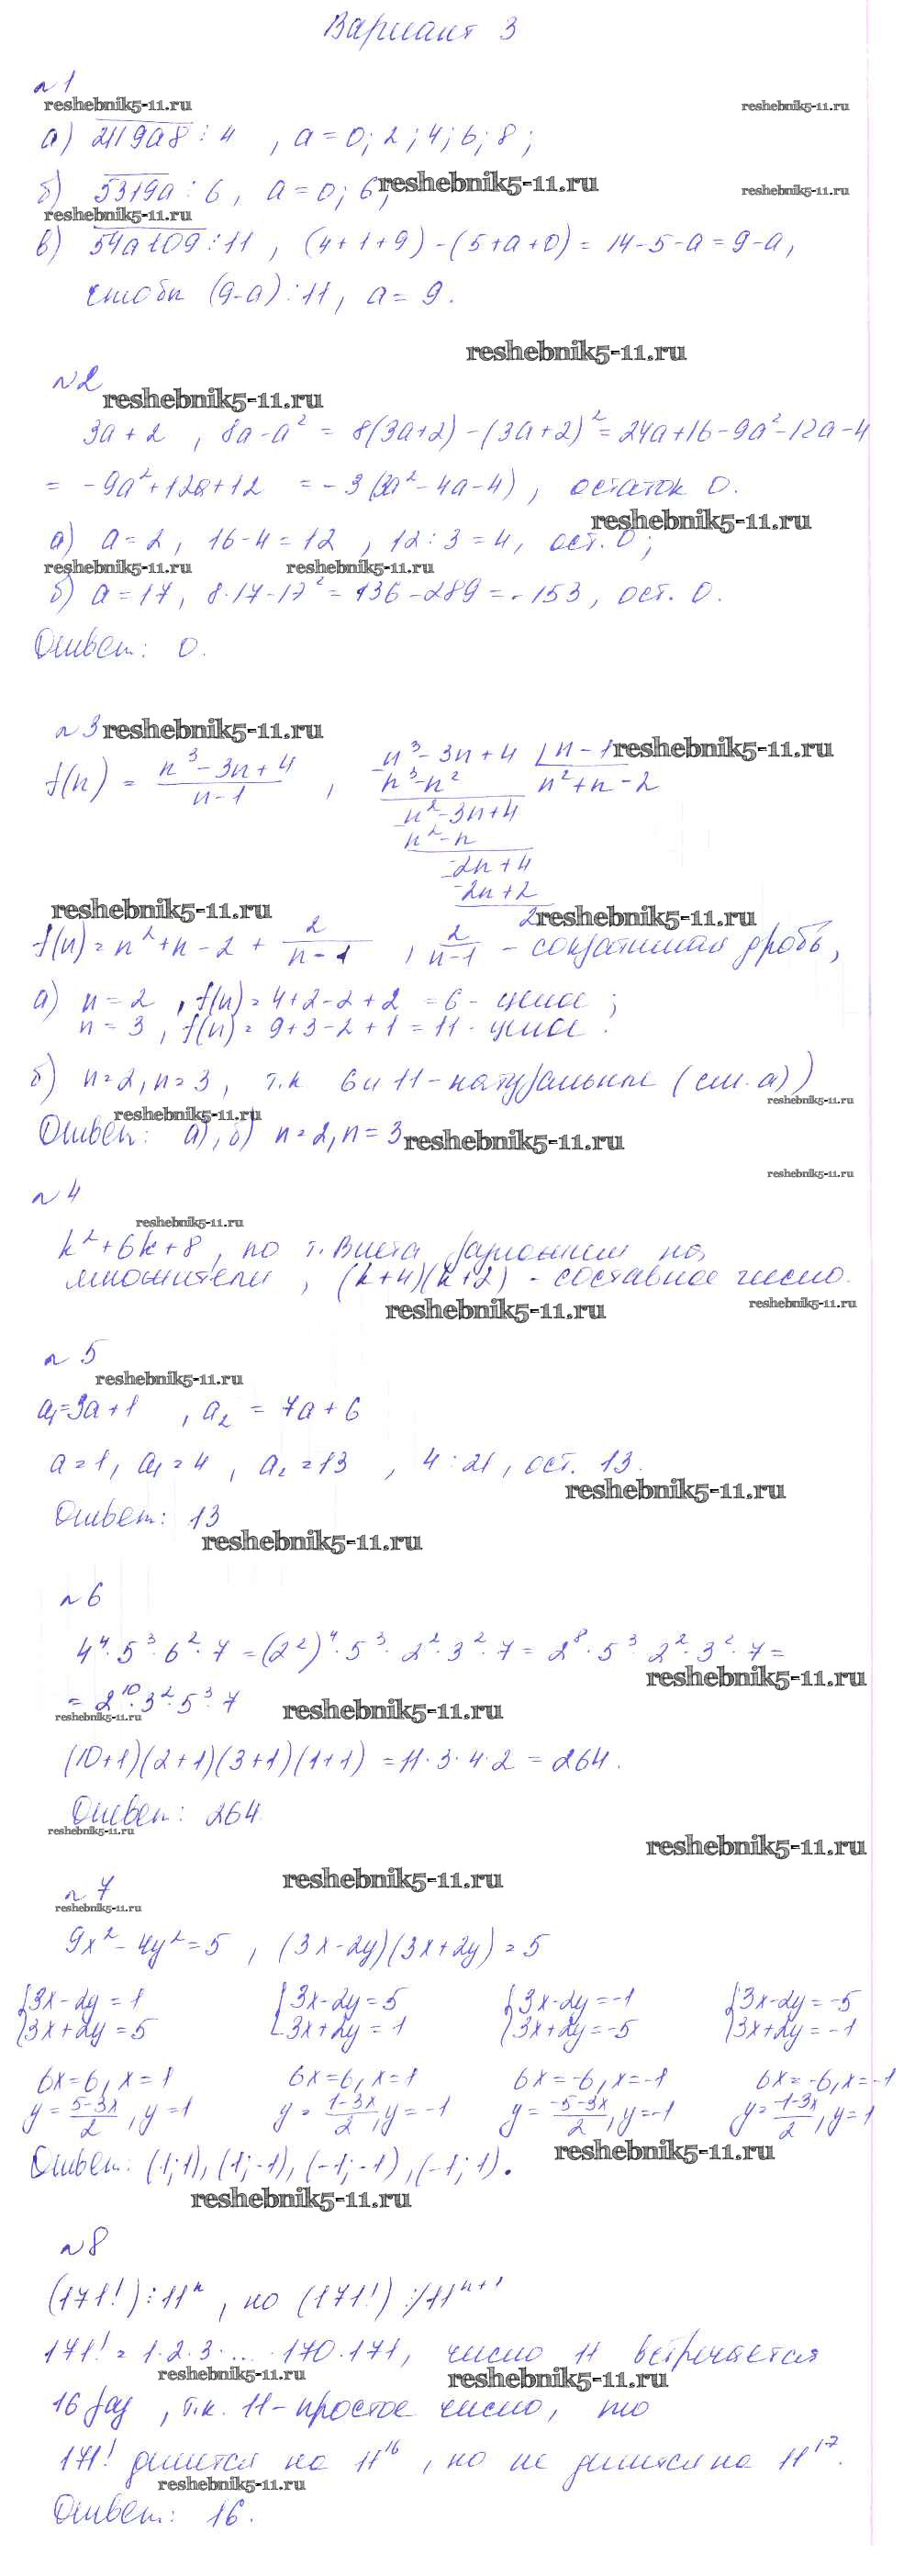 Вариант 3
№1
reshebnik5-11.ru
reshebnik5-11.ru
а) 2119a8 ⋮ 4 , a = 0; 2; 4; 6; 8;
б) 5319a ⋮ 6, a = 0; 6;
reshebnik5-11.ru
reshebnik5-11.ru
reshebnik5-11.ru
в) 54a109 ⋮ 11, (4+1+9) - (5+a+0) = 14-5-a = 9-a,
чтобы (9-a) ⋮ 11, a = 9.
reshebnik5-11.ru
№2
reshebnik5-11.ru
3a+2 , 8a-a² = 8(3a+2)-(3a+2)² = 24a+16-9a²-12a-4
= -9a²+12a+12 = -3(3a²-4a-4), остаток 0.
reshebnik5-11.ru
а) a=2, 16-4=12 , 12:3=4, ост. 0;
reshebnik5-11.ru
reshebnik5-11.ru
б) a=17, 8·17-17² = 136-289 = -153, ост. 0.
Ответ: 0.
№3
reshebnik5-11.ru
reshebnik5-11.ru
f(n) = (n³-3n+4)/(n-1) , n³-3n+4 | n-1
n³-n² n²+n-2
n²-3n+4
n²-n
-2n+4
-2n+2
2
reshebnik5-11.ru
reshebnik5-11.ru
f(n) = n²+n-2 + 2/(n-1) , 2/(n-1) - сократимая дробь,
а) n=2 , f(n) = 4+2-2+2 = 6 - целое ;
n=3 , f(n) = 9+3-2+1 = 11 - целое .
б) n=2, n=3 , т.к 6 и 11 - натуральные (см. а))
reshebnik5-11.ru
reshebnik5-11.ru
Ответ: а), б) n=2, n=3
reshebnik5-11.ru
reshebnik5-11.ru
№4
reshebnik5-11.ru
k²+6k+8, по т. Виета разложим на
множители , (k+4)(k+2) - составное число.
reshebnik5-11.ru
reshebnik5-11.ru
№5
reshebnik5-11.ru
a₁=3a+1 , a₂ = 7a+6
a=1, a₁=4 , a₂=13 , 4:21, ост. 13.
reshebnik5-11.ru
Ответ: 13
reshebnik5-11.ru
№6
4⁴·5³·6²·7 = (2²)⁴·5³·2²·3²·7 = 2⁸·5³·2²·3²·7 =
reshebnik5-11.ru
= 2¹⁰·3²·5³·7
reshebnik5-11.ru
reshebnik5-11.ru
(10+1)(2+1)(3+1)(1+1) = 11·3·4·2 = 264.
Ответ: 264.
reshebnik5-11.ru
reshebnik5-11.ru
reshebnik5-11.ru
№7
reshebnik5-11.ru
9x²-4y²=5 , (3x-2y)(3x+2y)=5
{3x-2y=1 {3x-2y=5 {3x-2y=-1 {3x-2y=-5
{3x+2y=5 {3x+2y=1 {3x+2y=-5 {3x+2y=-1
6x=6, x=1 6x=6, x=1 6x=-6, x=-1 6x=-6, x=-1
y=(5-3x)/2, y=1 y=(1-3x)/2, y=-1 y=(-5-3x)/2, y=-1 y=(-1-3x)/2, y=1
reshebnik5-11.ru
Ответ: (1;1), (1;-1), (-1;-1), (-1;1).
reshebnik5-11.ru
№8
(171!) ⋮ 11ⁿ , но (171!) ⋮̸ 11ⁿ⁺¹
171! = 1·2·3·...·170·171, число 11 встречается
reshebnik5-11.ru
reshebnik5-11.ru
16 раз , т.к. 11 - простое число, то
171! делится на 11¹⁶ , но не делится на 11¹⁷.
reshebnik5-11.ru
Ответ: 16.